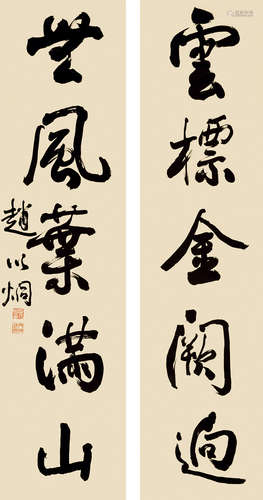 雲標金闕迥
無風葉滿山
趙以炯